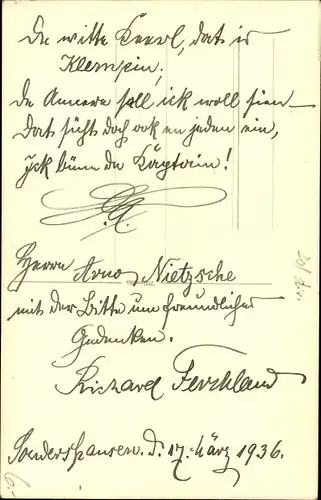 De witte Keerl, dat is
Klempin;
De Annere sall ick woll sien –
Dat süht doch ook en jeden ein,
Ick bünn de Käptain!
Herrn Arno Nietzsche
mit der Bitte um freundliches
Gedenken.
Richard Ferchland
Sondershausen. d. 17. März 1936.